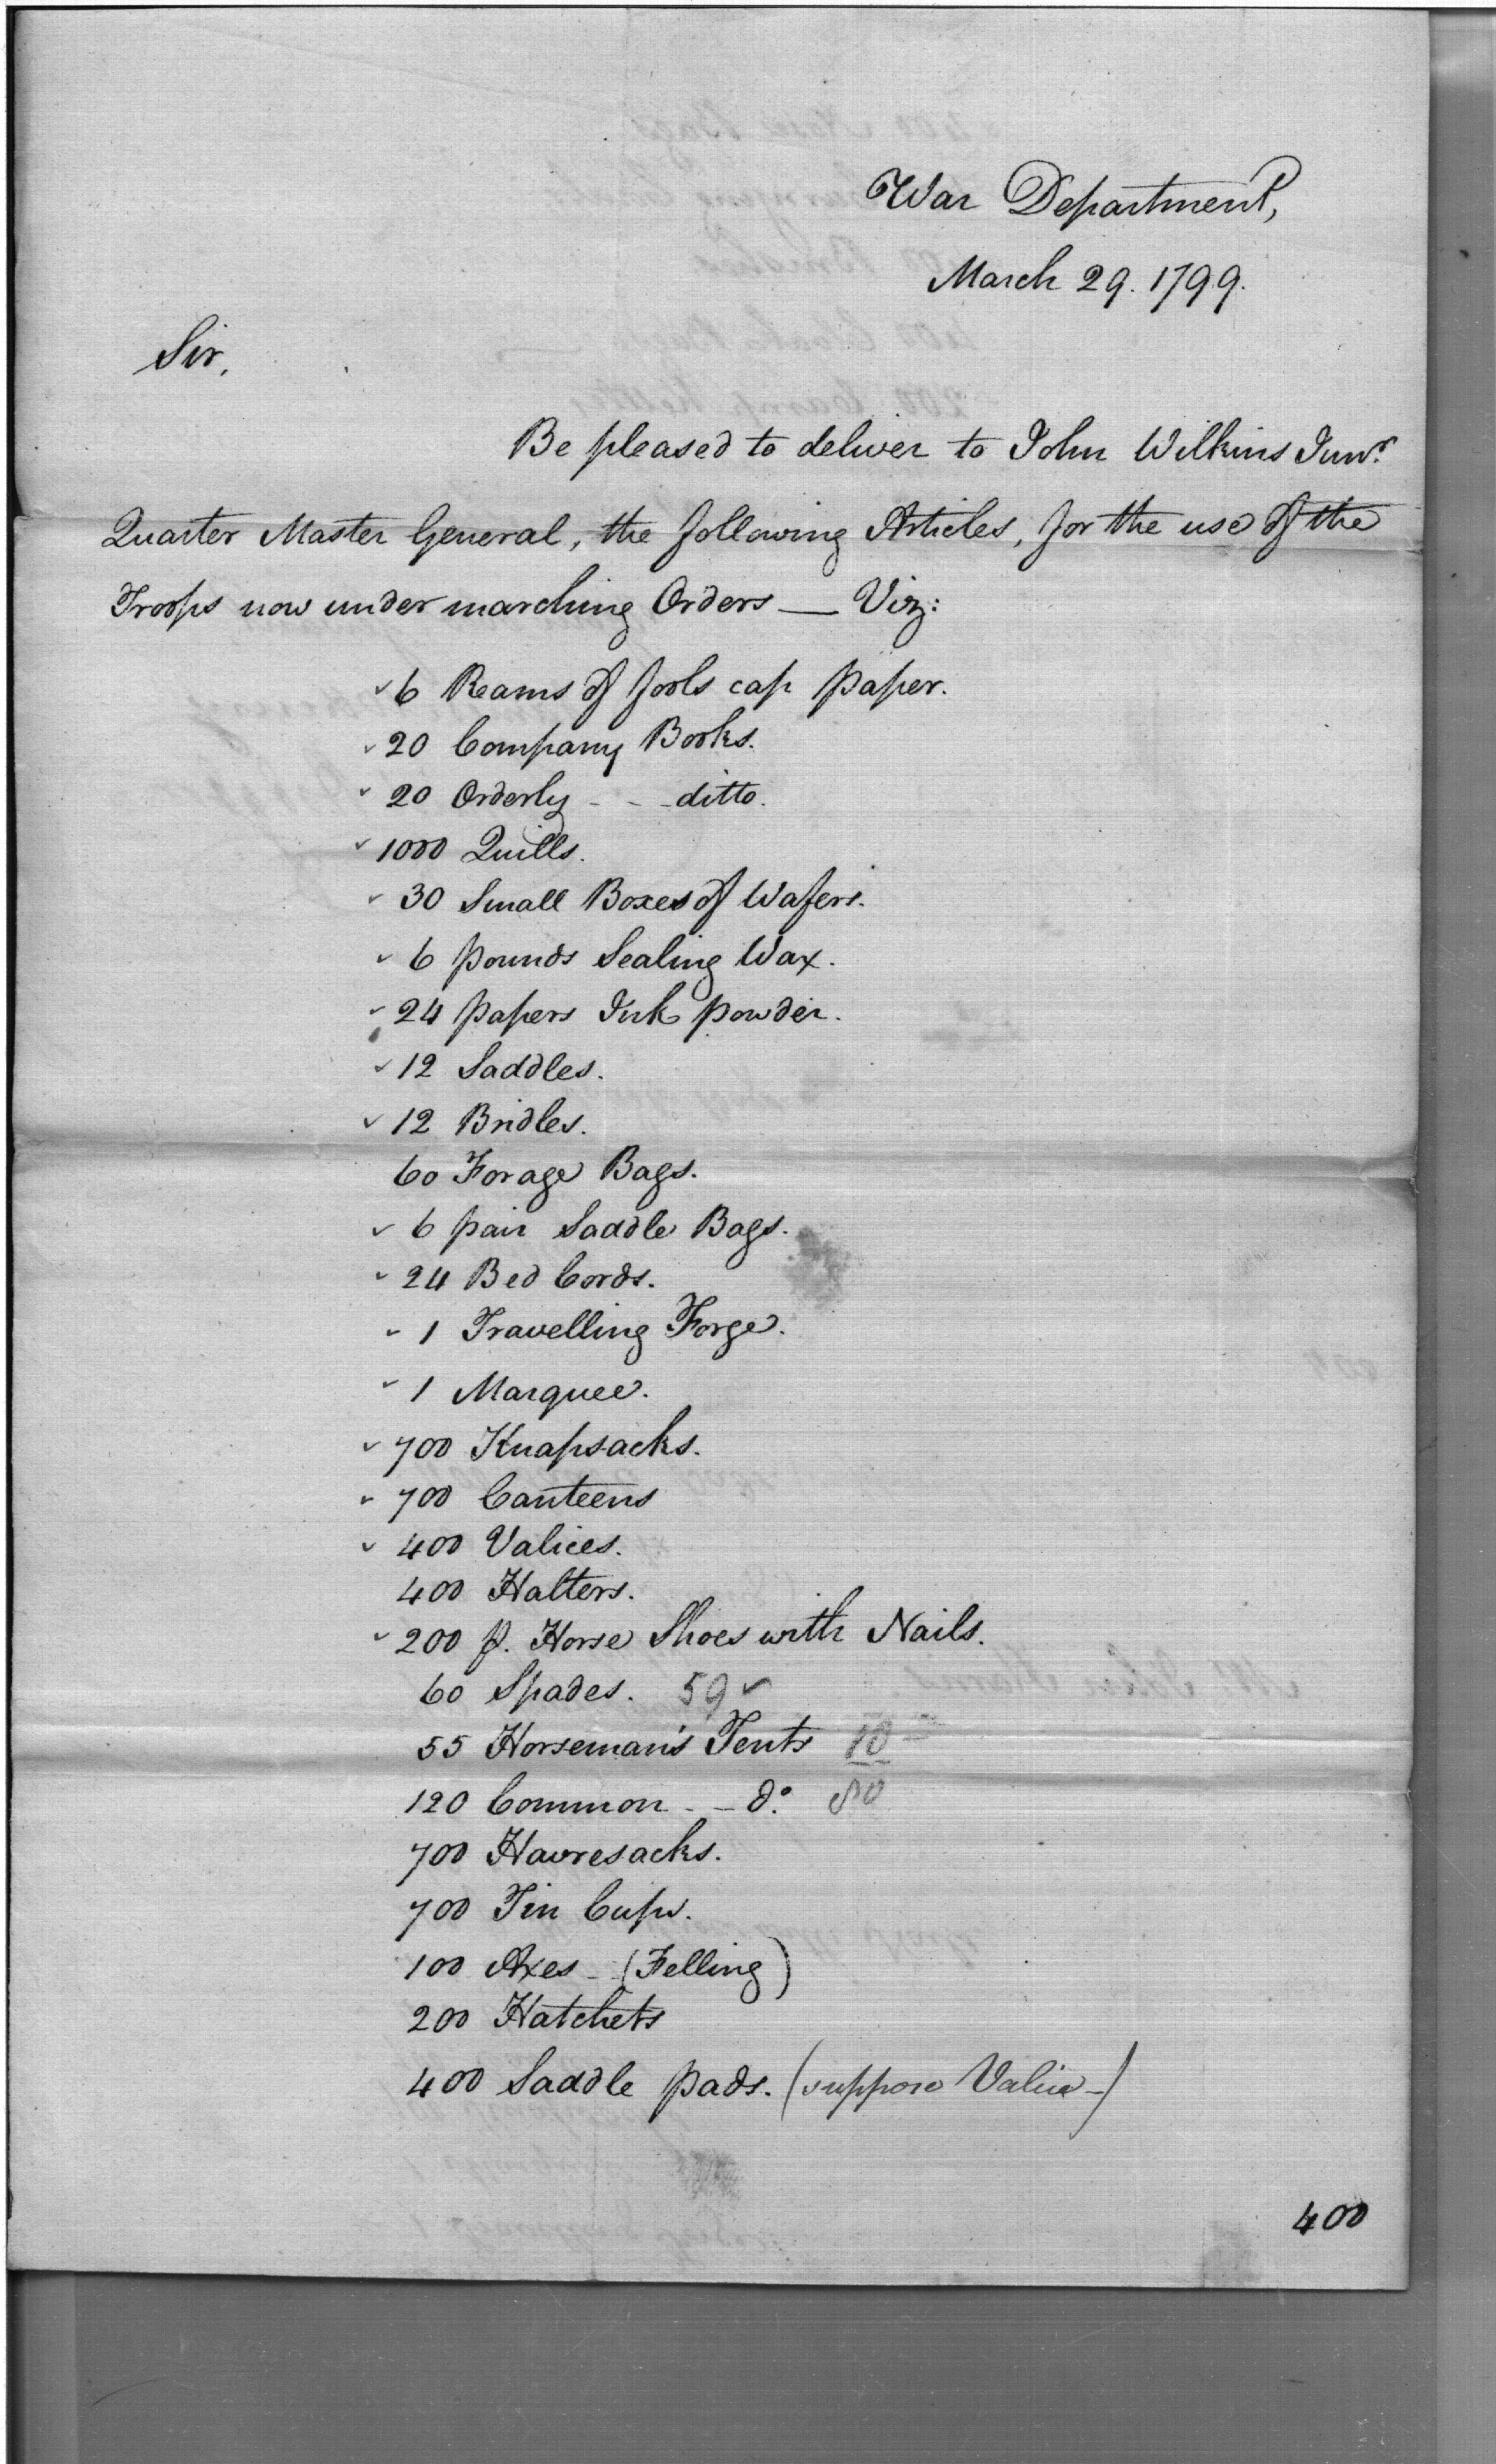 War Department,
March 29. 1799.
Sir,
Be pleased to deliver to John Wilkins Junr.
Quarter Master General, the following Articles, for the use of the
Troops now under marching Orders — Viz:
✓ 6 Reams of fools cap paper.
✓ 20 Company Books.
✓ 20 Orderly - - - ditto.
✓ 1000 Quills.
✓ 30 Small Boxes of Wafers.
✓ 6 pounds Sealing Wax.
✓ 24 papers Ink powder.
✓ 12 Saddles.
✓ 12 Bridles.
60 Forage Bags.
✓ 6 pair Saddle Bags.
✓ 24 Bed Cords.
✓ 1 Travelling Forge.
✓ 1 Marquee.
✓ 700 Knapsacks.
✓ 700 Canteens
✓ 400 Valices.
400 Halters.
✓ 200 p. Horse Shoes with Nails.
60 Spades. 59 ✓
55 Horseman's Tents 10
120 Common - - do. 80
700 Havresacks.
700 Tin Cups.
100 Axes - (Felling)
200 Hatchets
400 Saddle pads. (suppose Valice -)
400